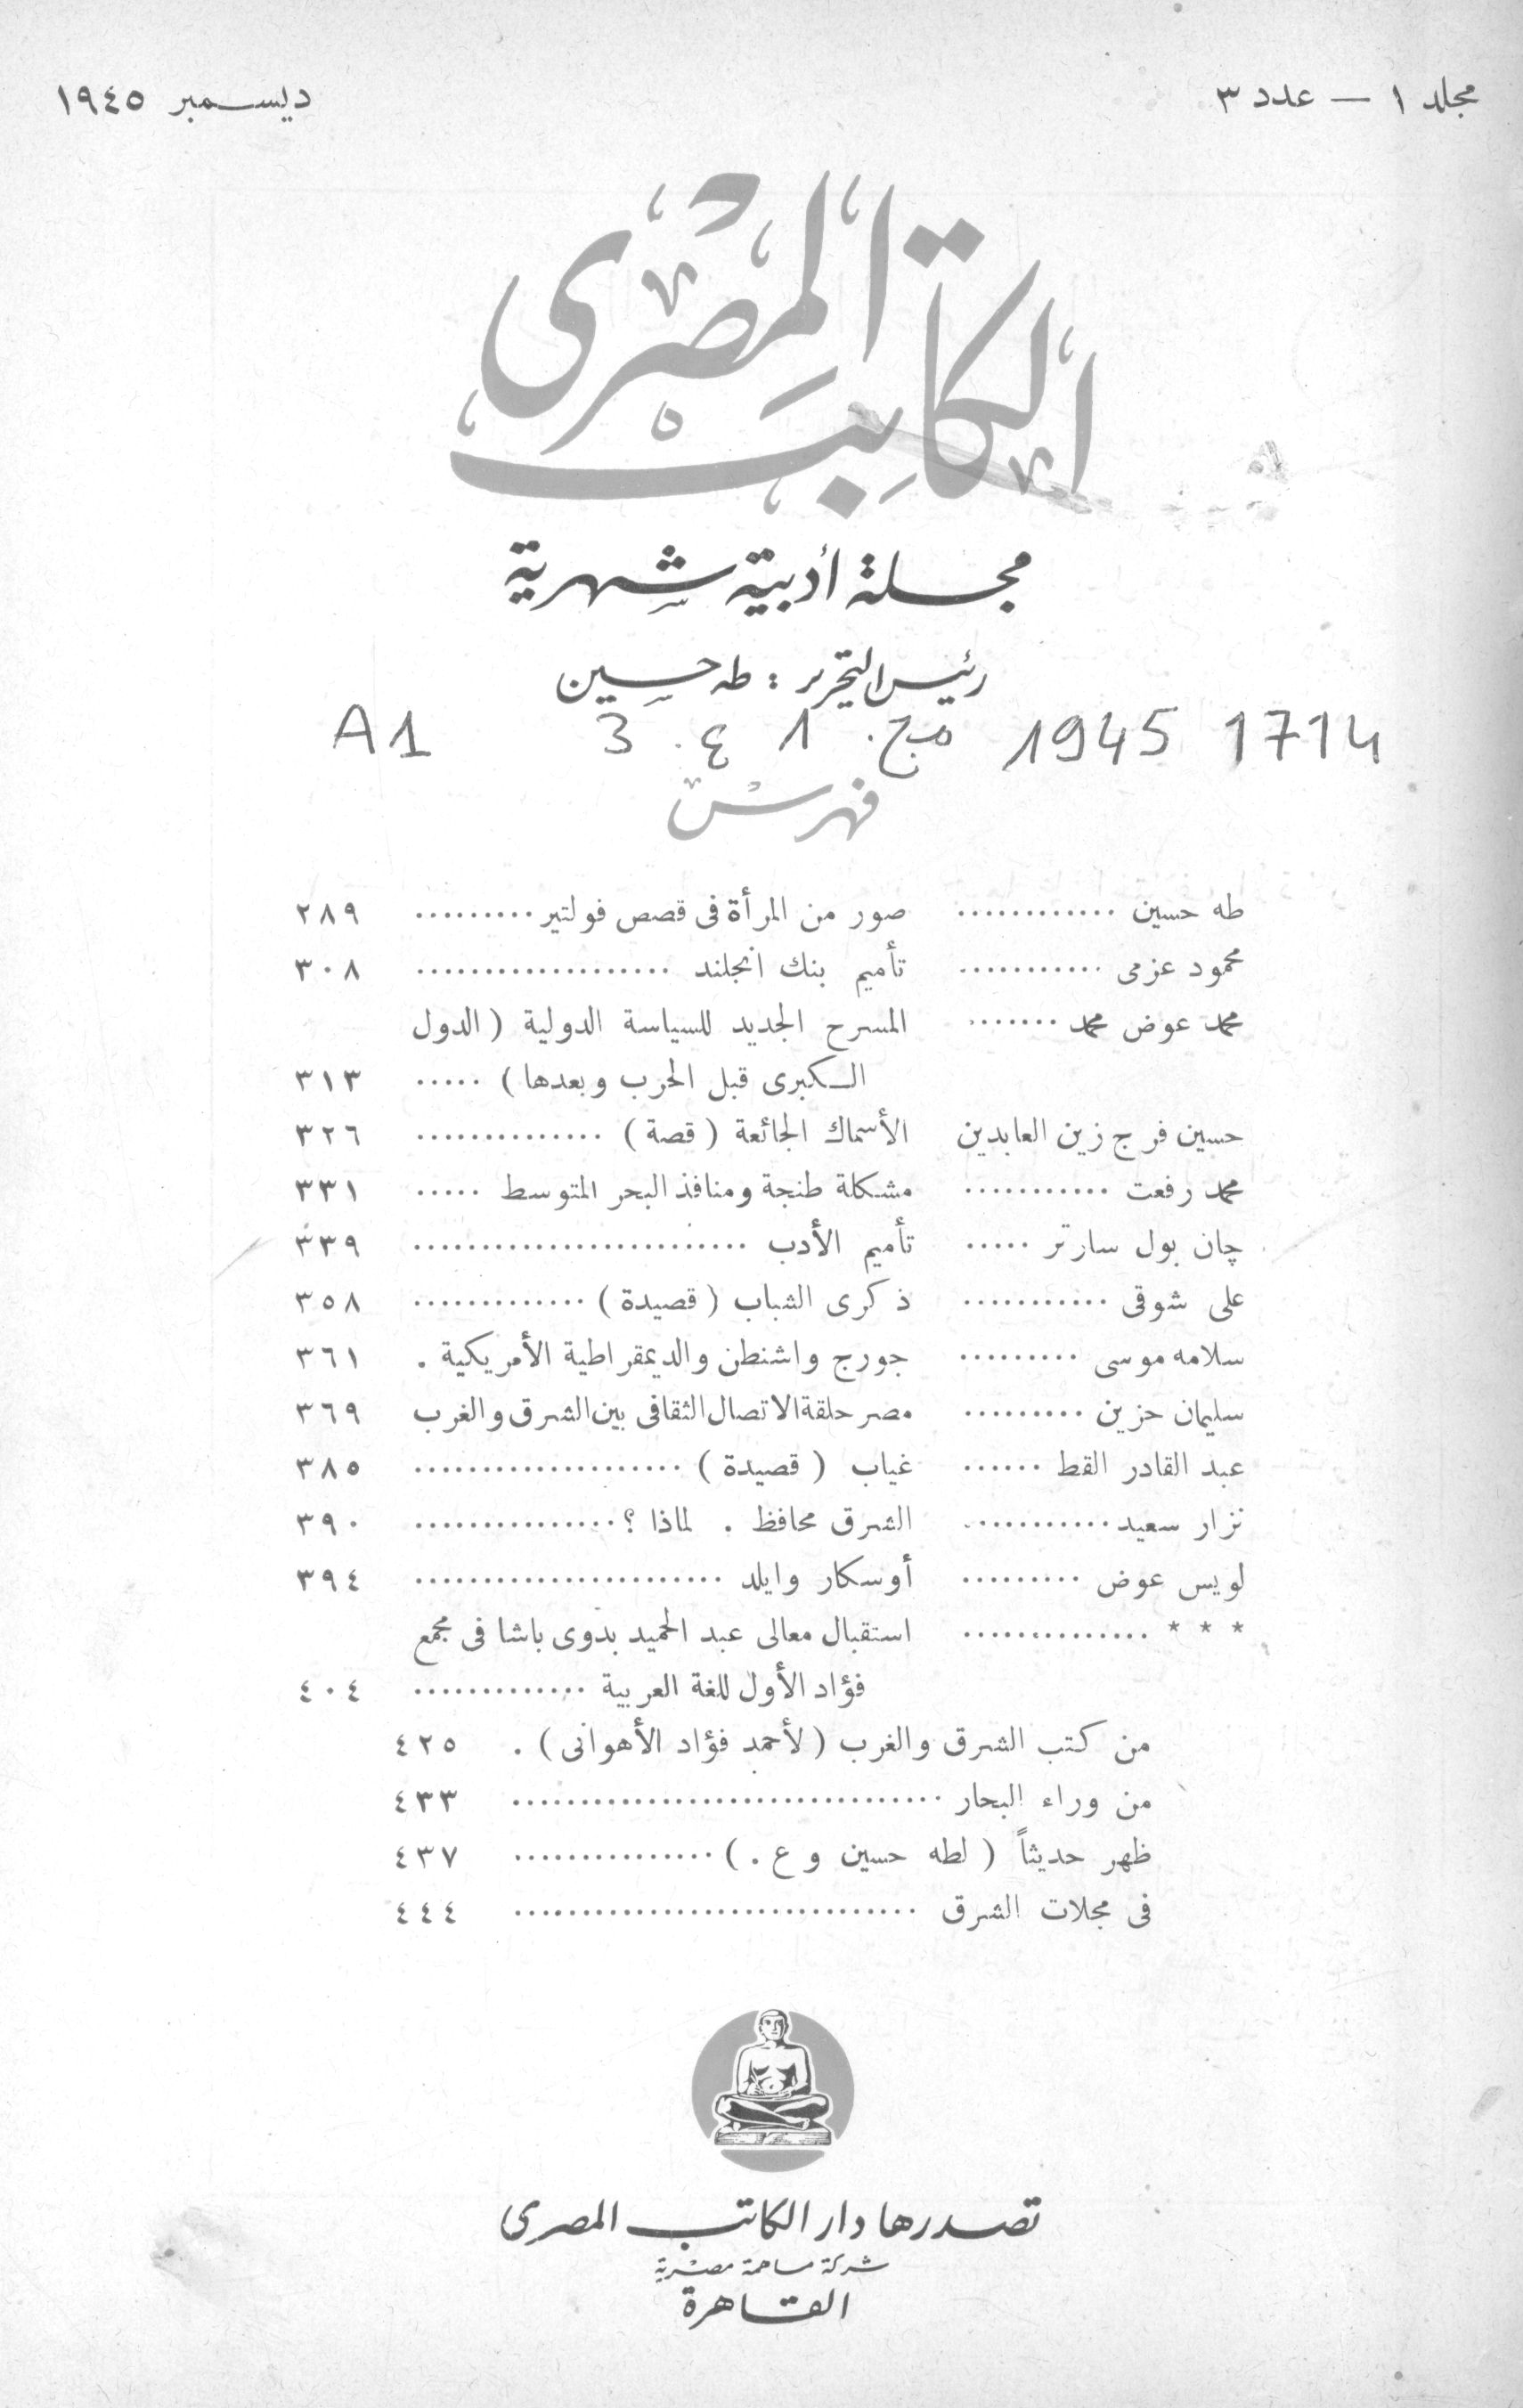 مجلد ١ — عدد ٣
ديسمبر ١٩٤٥
الكاتب المصرى
مجلة أدبية شهرية
رئيس التحرير : طه حسين
1714 1945 مج. ١ ع. 3 A1
فهرس
طه حسين ............ صور من المرأة فى قصص فولتير ......... ٢٨٩
محمود عزمى ........... تأميم بنك انجلند ................... ٣٠٨
محمد عوض محمد ....... المسرح الجديد للسياسة الدولية ( الدول
الكبرى قبل الحرب وبعدها ) ..... ٣١٣
حسين فرج زين العابدين الأسماك الجائعة ( قصة ) .............. ٣٢٦
محمد رفعت ........... مشكلة طنجة ومنافذ البحر المتوسط ..... ٣٣١
چان بول سارتر ..... تأميم الأدب ......................... ٣٣٩
على شوقى ........... ذكرى الشباب ( قصيدة ) ............. ٣٥٨
سلامه موسى ......... جورج واشنطن والديمقراطية الأمريكية . ٣٦١
سليمان حزين ......... مصر حلقة الاتصال الثقافى بين الشرق والغرب ٣٦٩
عبد القادر القط ...... غياب ( قصيدة ) .................... ٣٨٥
نزار سعيد ........... الشرق محافظ . لماذا ؟ ............... ٣٩٠
لويس عوض ......... أوسكار وايلد ....................... ٣٩٤
* * * .............. استقبال معالى عبد الحميد بدوى باشا فى مجمع
فؤاد الأول للغة العربية ............. ٤٠٤
من كتب الشرق والغرب ( لأحمد فؤاد الأهوانى ) . ٤٢٥
من وراء البحار ................................ ٤٣٣
ظهر حديثاً ( لطه حسين و ع . ) ............... ٤٣٧
فى مجلات الشرق .............................. ٤٤٤
تصدرها دار الكاتب المصرى
شركة مساهمة مصرية
القاهرة